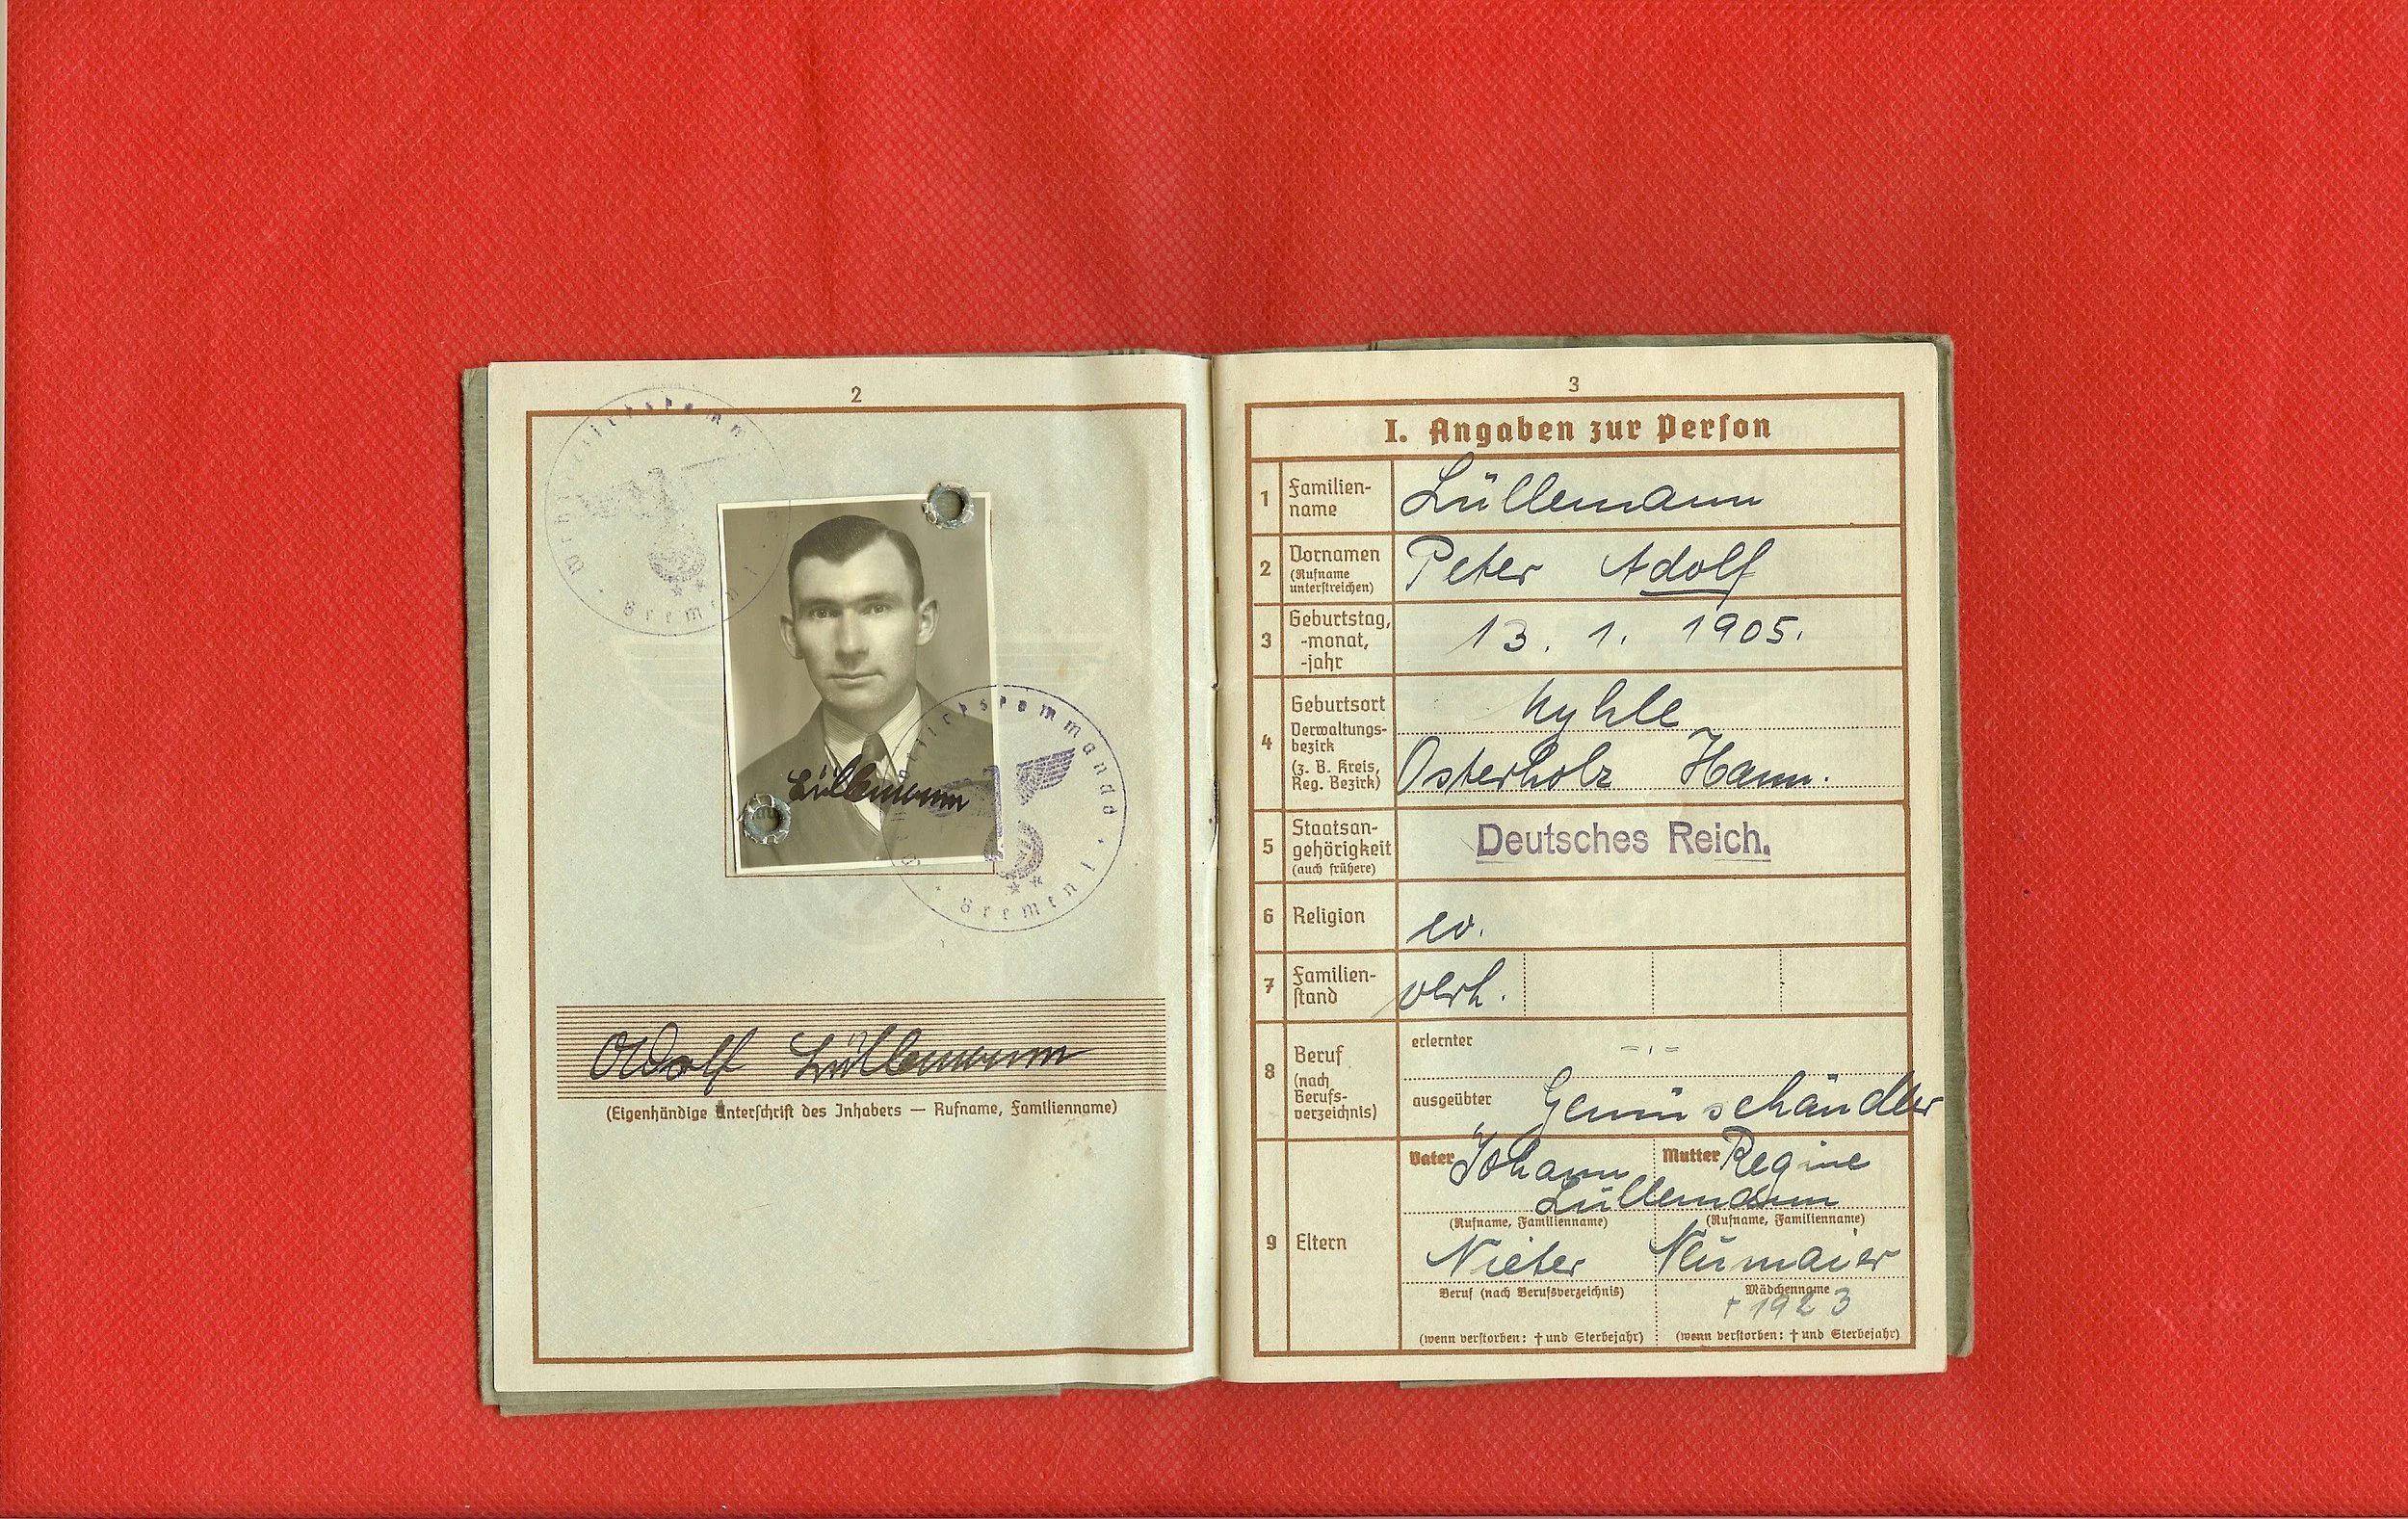 2
Wehrbezirkskommando
Bremen I
Lüllemann
Wehrbezirkskommando
Bremen I
Adolf Lüllemann
(Eigenhändige Unterschrift des Inhabers — Rufname, Familienname)
3
I. Angaben zur Person
1 Familien-
name Lüllemann
2 Vornamen
(Rufname
unterstreichen) Peter Adolf
3 Geburtstag,
-monat,
-jahr 13. 1. 1905.
4 Geburtsort
Verwaltungs-
bezirk
(z. B. Kreis,
Reg. Bezirk) Osterholz Hann.
5 Staatsan-
gehörigkeit
(auch frühere) Deutsches Reich.
6 Religion ev.
7 Familien-
stand verh.
8 Beruf
(nach
Berufs-
verzeichnis)
erlernter -,-
ausgeübter Gemüsehändler
9 Eltern
Vater Johann Mutter Regine
Lüllemann
(Rufname, Familienname) (Rufname, Familienname)
Nieter Neumaier
Beruf (nach Berufsverzeichnis) Mädchenname
† 1923
(wenn verstorben: † und Sterbejahr) (wenn verstorben: † und Sterbejahr)